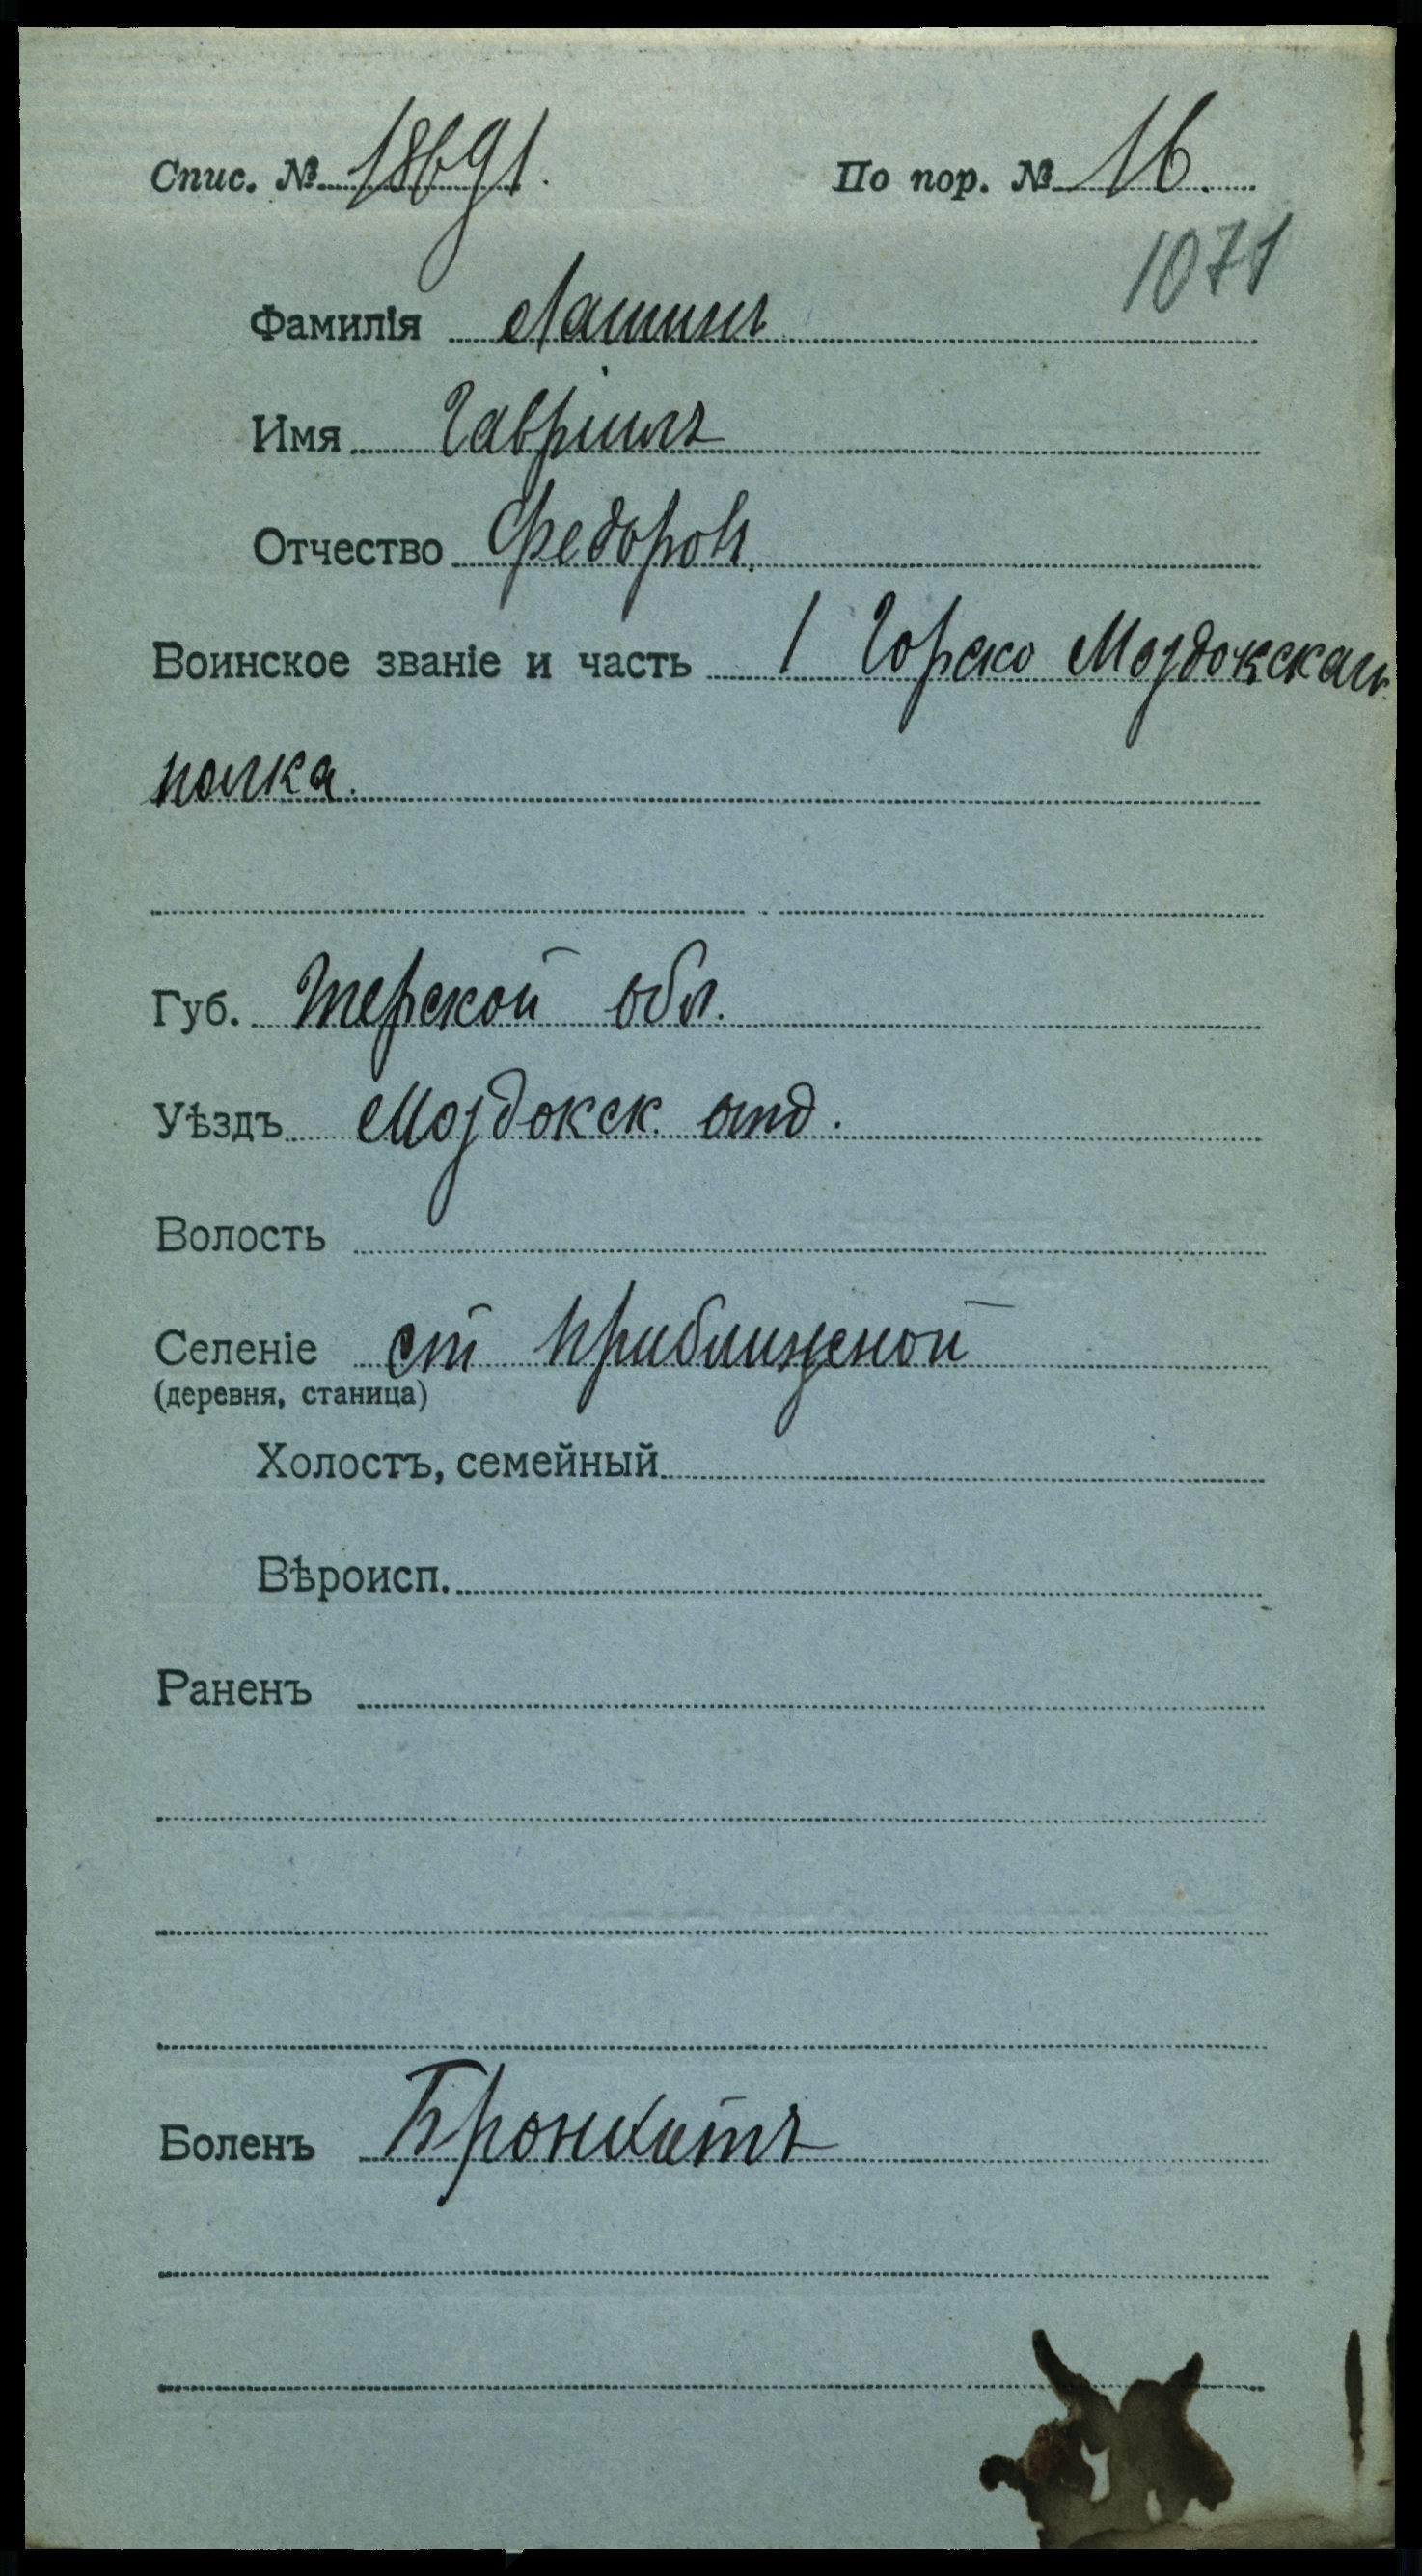 Спис. № 18691. По пор. № 16.
1071
Фамилія Лашинъ
Имя Гавріилъ
Отчество Федоров.
Воинское званіе и часть 1 Горско Моздокскаг.
полка.
Губ. Терской обл.
Уѣздъ Моздокск. отд.
Волость
Селеніе ст Приближной
(деревня, станица)
Холостъ, семейный
Вѣроисп.
Раненъ
Боленъ Бронхитъ